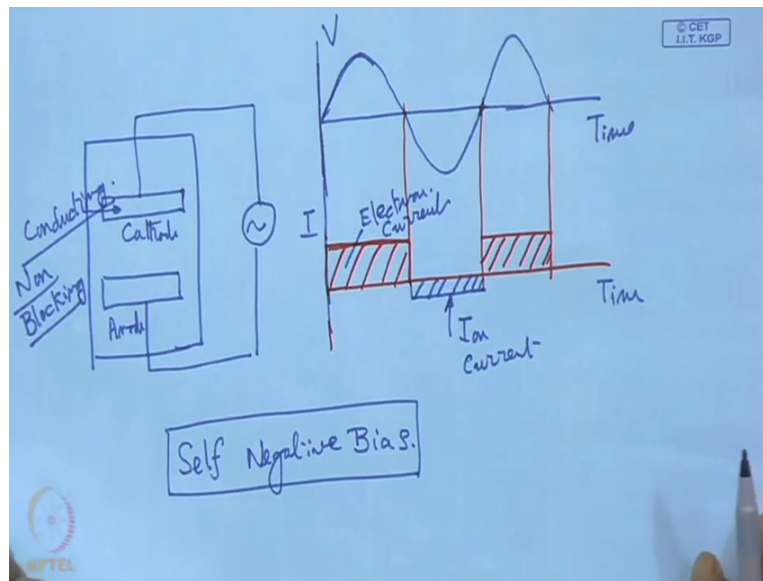 © CET
I.I.T. KGP
V
Time
Conducting.
Cathode
Non
Blocking
Anode
~
I
Electron.
Current
Time
Ion
Current
Self Negative Bias.
NPTEL